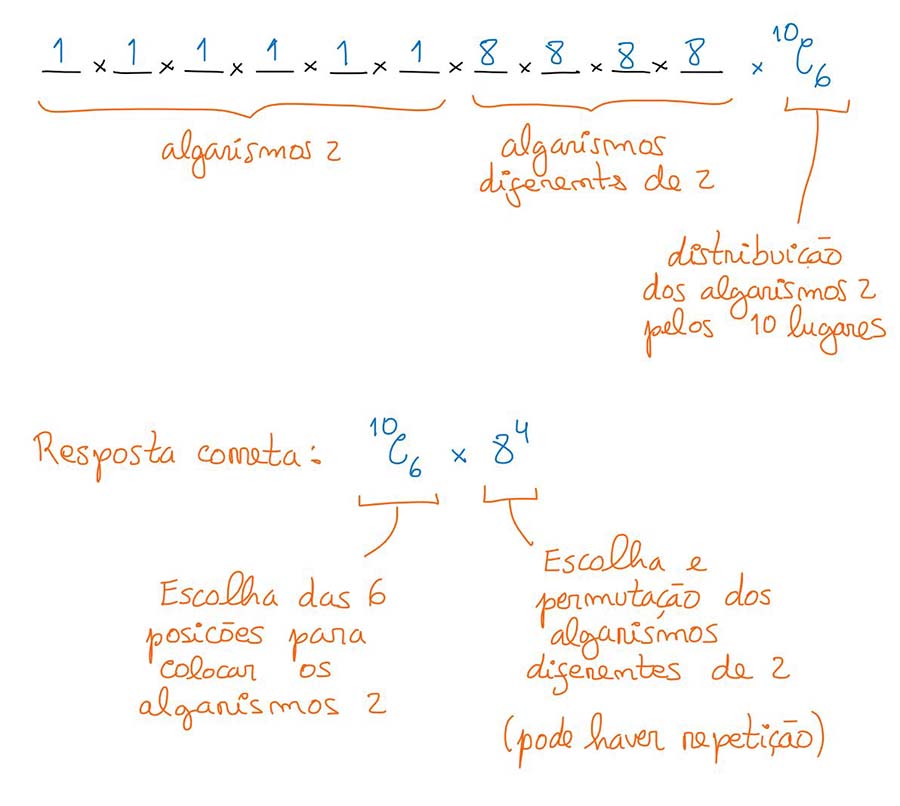 1 × 1 × 1 × 1 × 1 × 1 × 8 × 8 × 8 × 8 × ¹⁰C₆
algarismos 2
algarismos
diferents de 2
distribuição
dos algarismos 2
pelos 10 lugares
Resposta correta: ¹⁰C₆ × 8⁴
Escolha das 6
posicões para
colocar os
algarismos 2
Escolha e
permutação dos
algarismos
diferentes de 2
(pode haver repetição)